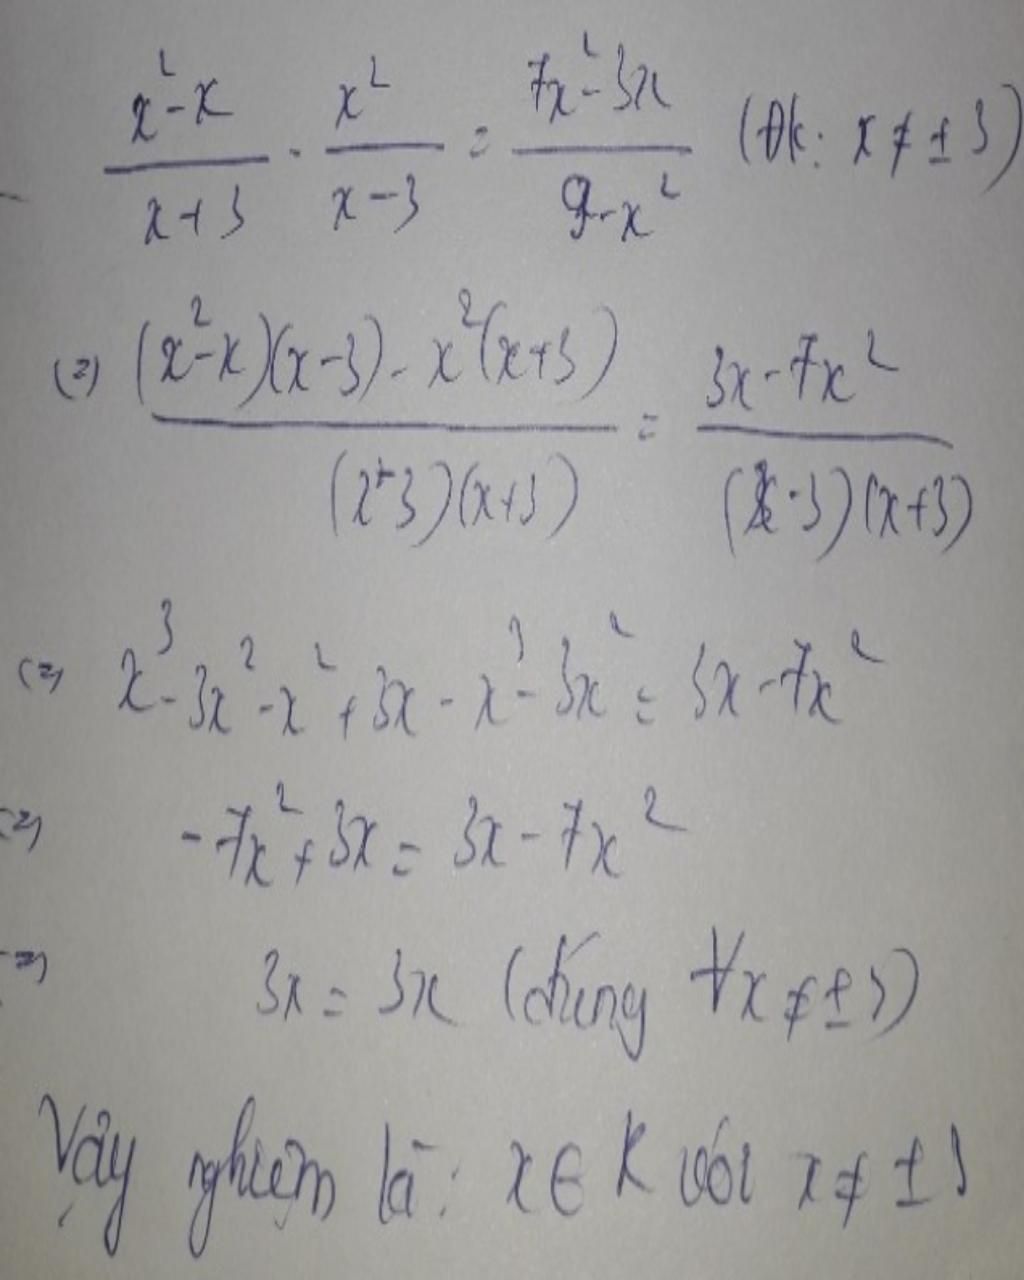 (x²-x)/(x+3) - x²/(x-3) = (7x²-3x)/(9-x²) (Đk: x ≠ ±3)
(=) ((x²-x)(x-3) - x²(x+3))/((x-3)(x+3)) = (3x-7x²)/((x-3)(x+3))
(=) x³-3x²-x²+3x-x³-3x² = 3x-7x²
(=) -7x²+3x = 3x-7x²
(=) 3x = 3x (đúng ∀x ≠ ±3)
Vậy nghiệm là: x ∈ R với x ≠ ±3